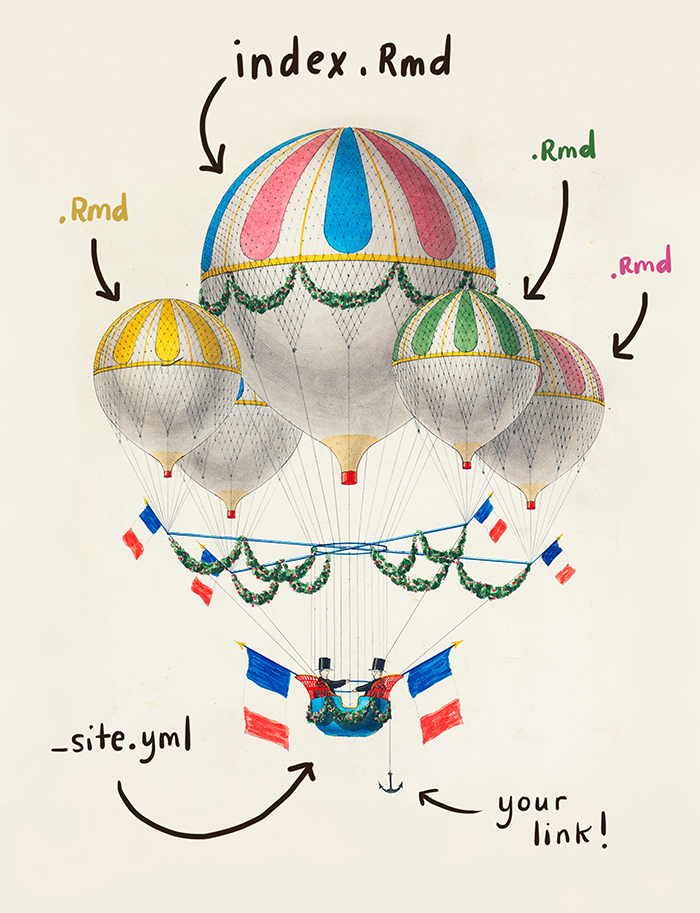 index.Rmd
.Rmd
.Rmd
.Rmd
_site.yml
your
link!